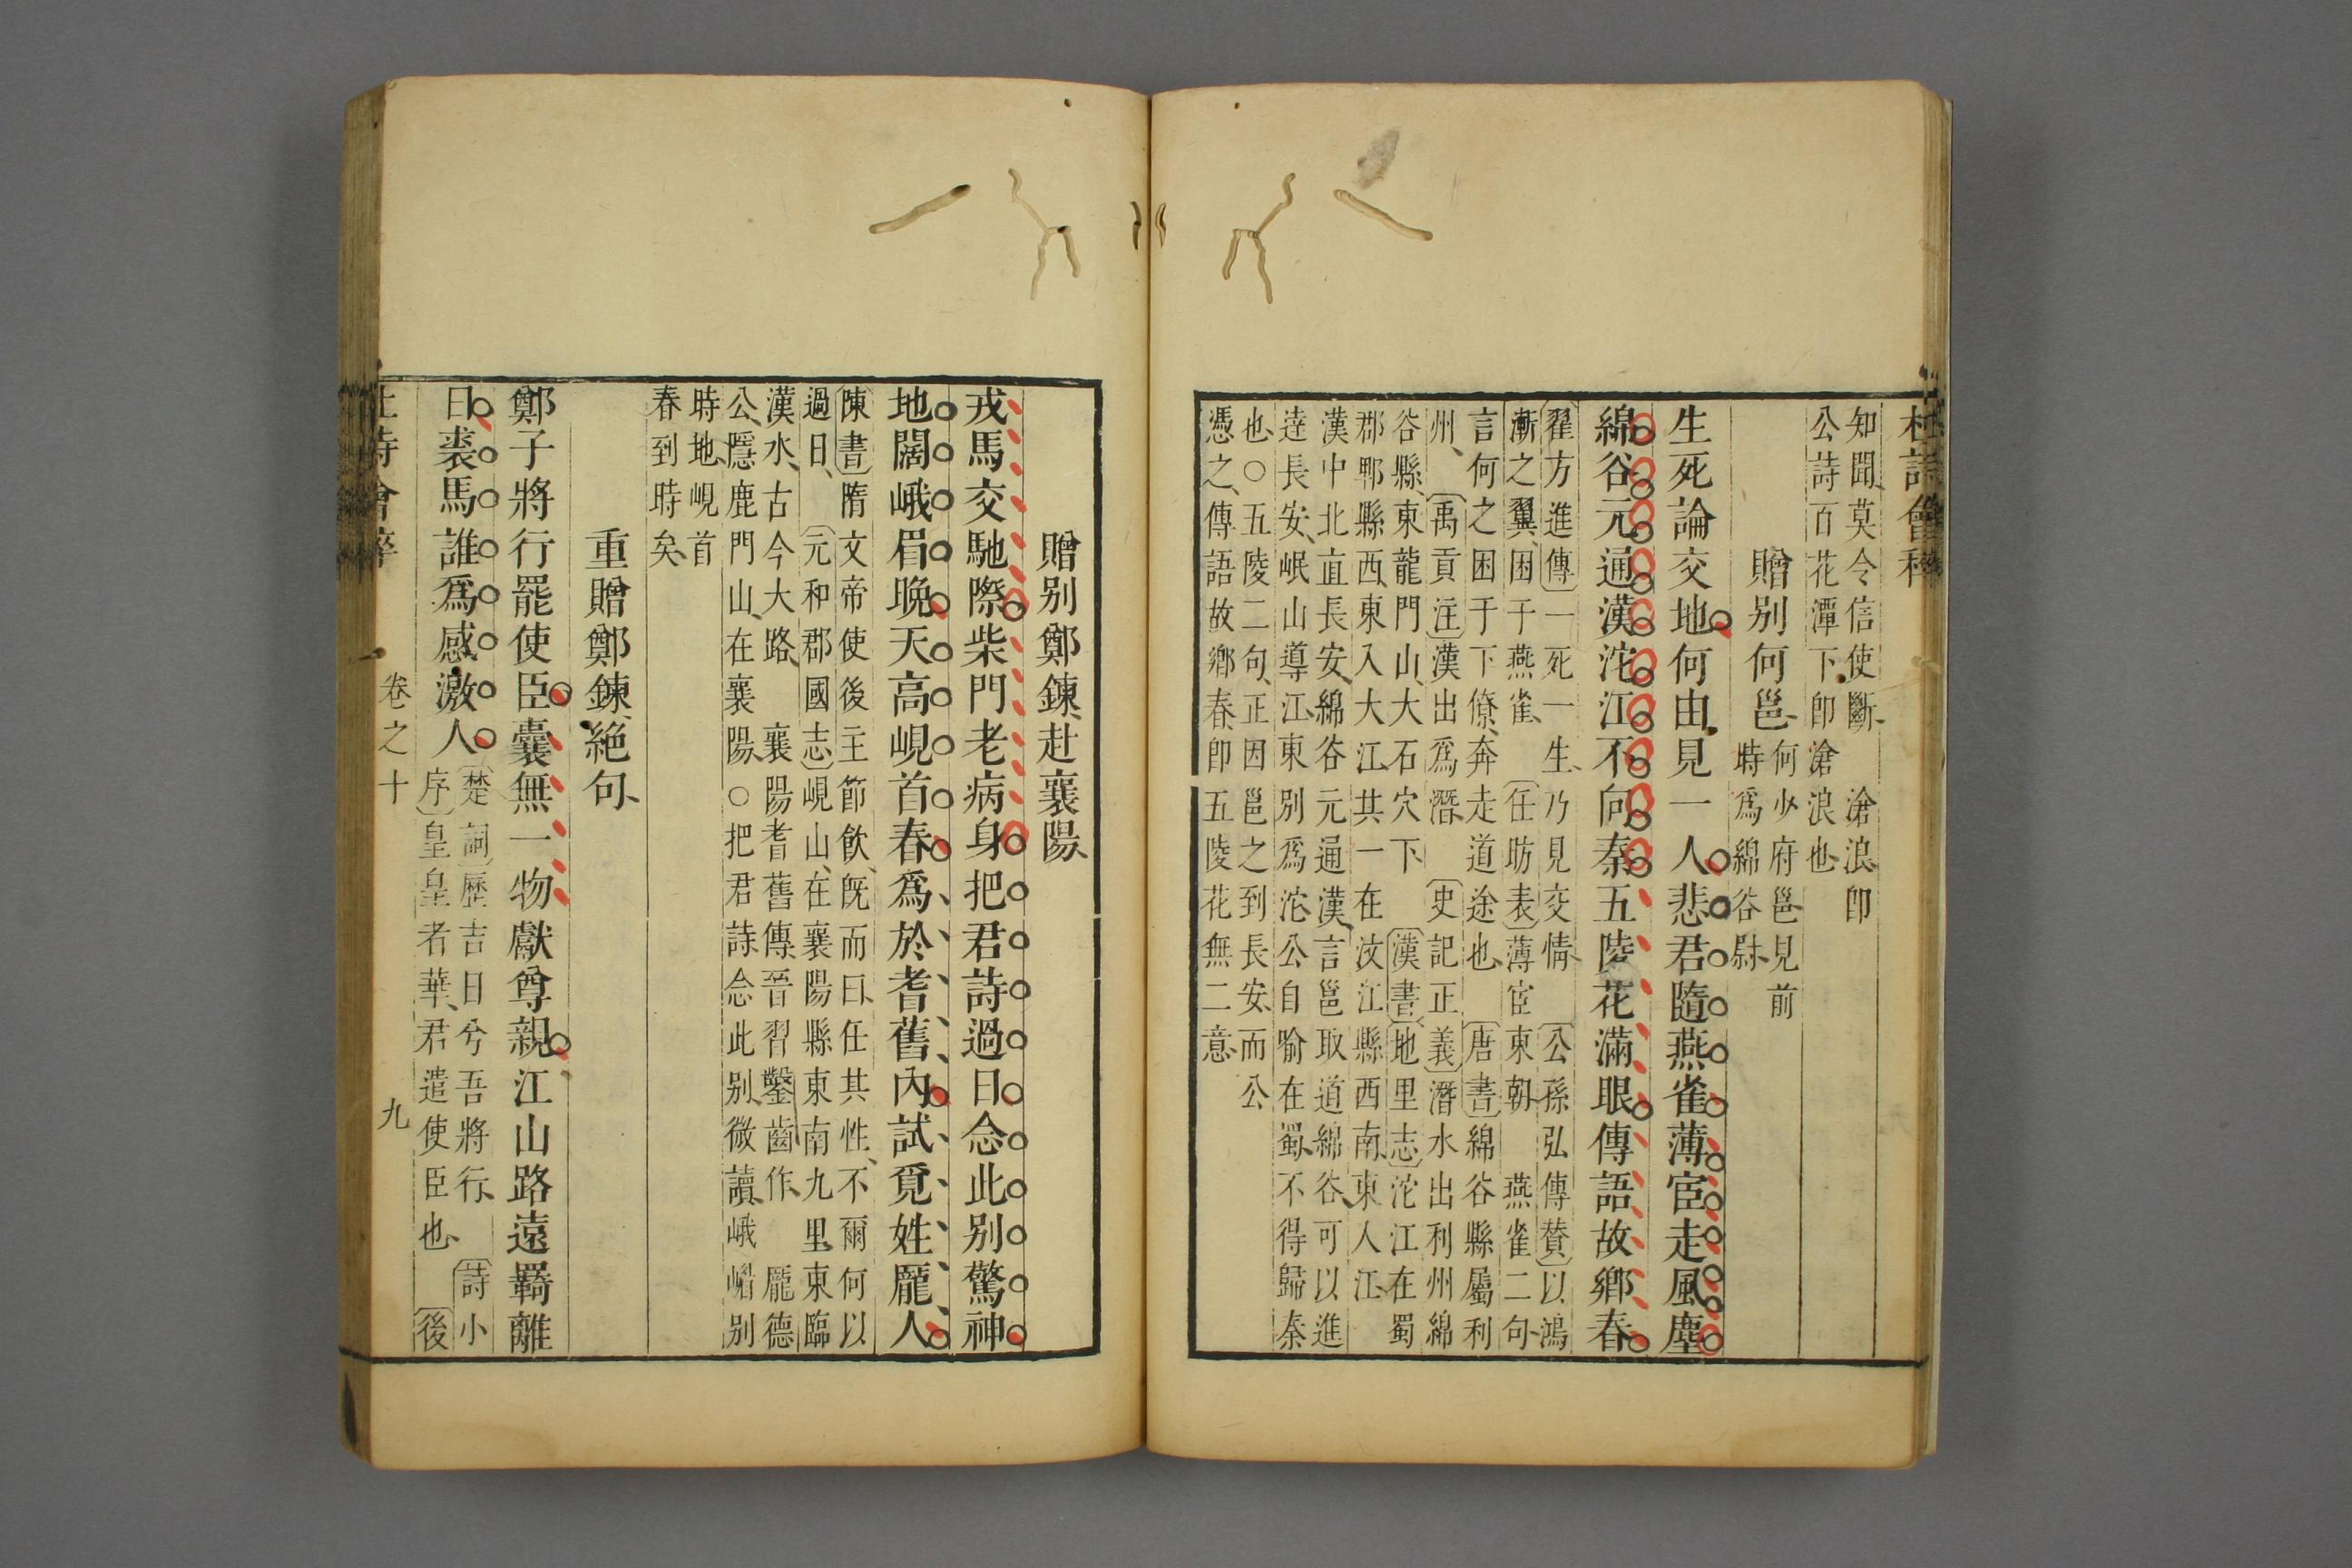 杜詩會稡
知聞莫令信使斷、　滄浪卽
公詩百花潭下卽滄浪也、
贈别何邕、
何少府邕見前
時爲綿谷尉、
生死論交地何由見一人悲君隨燕雀薄宦走風塵
綿谷元通漢沱江不向秦五陵花滿眼傳語故鄉春
翟方進傳一死一生、乃見交情、　公孫弘傳贊以鴻
漸之翼、困于燕雀、　任昉表薄宦東朝、　燕雀二句、
言何之困于下僚、奔走道途也、　唐書綿谷縣屬利
州、　禹貢注漢出爲潛、　史記正義潛水出利州綿
谷縣、東龍門山、大石穴下　漢書地里志沱江在蜀
郡郫縣西、東入大江、其一在汶江縣西南、東人江、
漢中北直長安、綿谷元通漢、言邕取道綿谷、可以進
達長安、岷山導江、東別爲沱、公自喻在蜀、不得歸秦
也、○五陵二句、正因邕之到長安、而公
憑之、傳語故鄉春卽五陵花無二意、
贈别鄭鍊、赴襄陽、
戎馬交馳際柴門老病身把君詩過日念此别驚神
地闊峨眉晚天高峴首春爲於耆舊內試覓姓龐人
陳書隋文帝使後主節飲、旣而曰、任其性、不爾何以
過日、　元和郡國志峴山、在襄陽縣東南九里、東臨
漢水、古今大路、　襄陽耆舊傳、晉習鑿齒作、　龐德
公、隱鹿門山、在襄陽、○把君詩、念此别、微讀、峨嵋别
時地、峴首
春到時矣、
重贈鄭鍊、絕句、
鄭子將行罷使臣囊無一物獻尊親江山路遠羈離
日裘馬誰爲感激人
楚詞歷吉日兮吾將行、　詩小
序皇皇者華、君遣使臣也、　後
杜詩會稡　卷之十　九